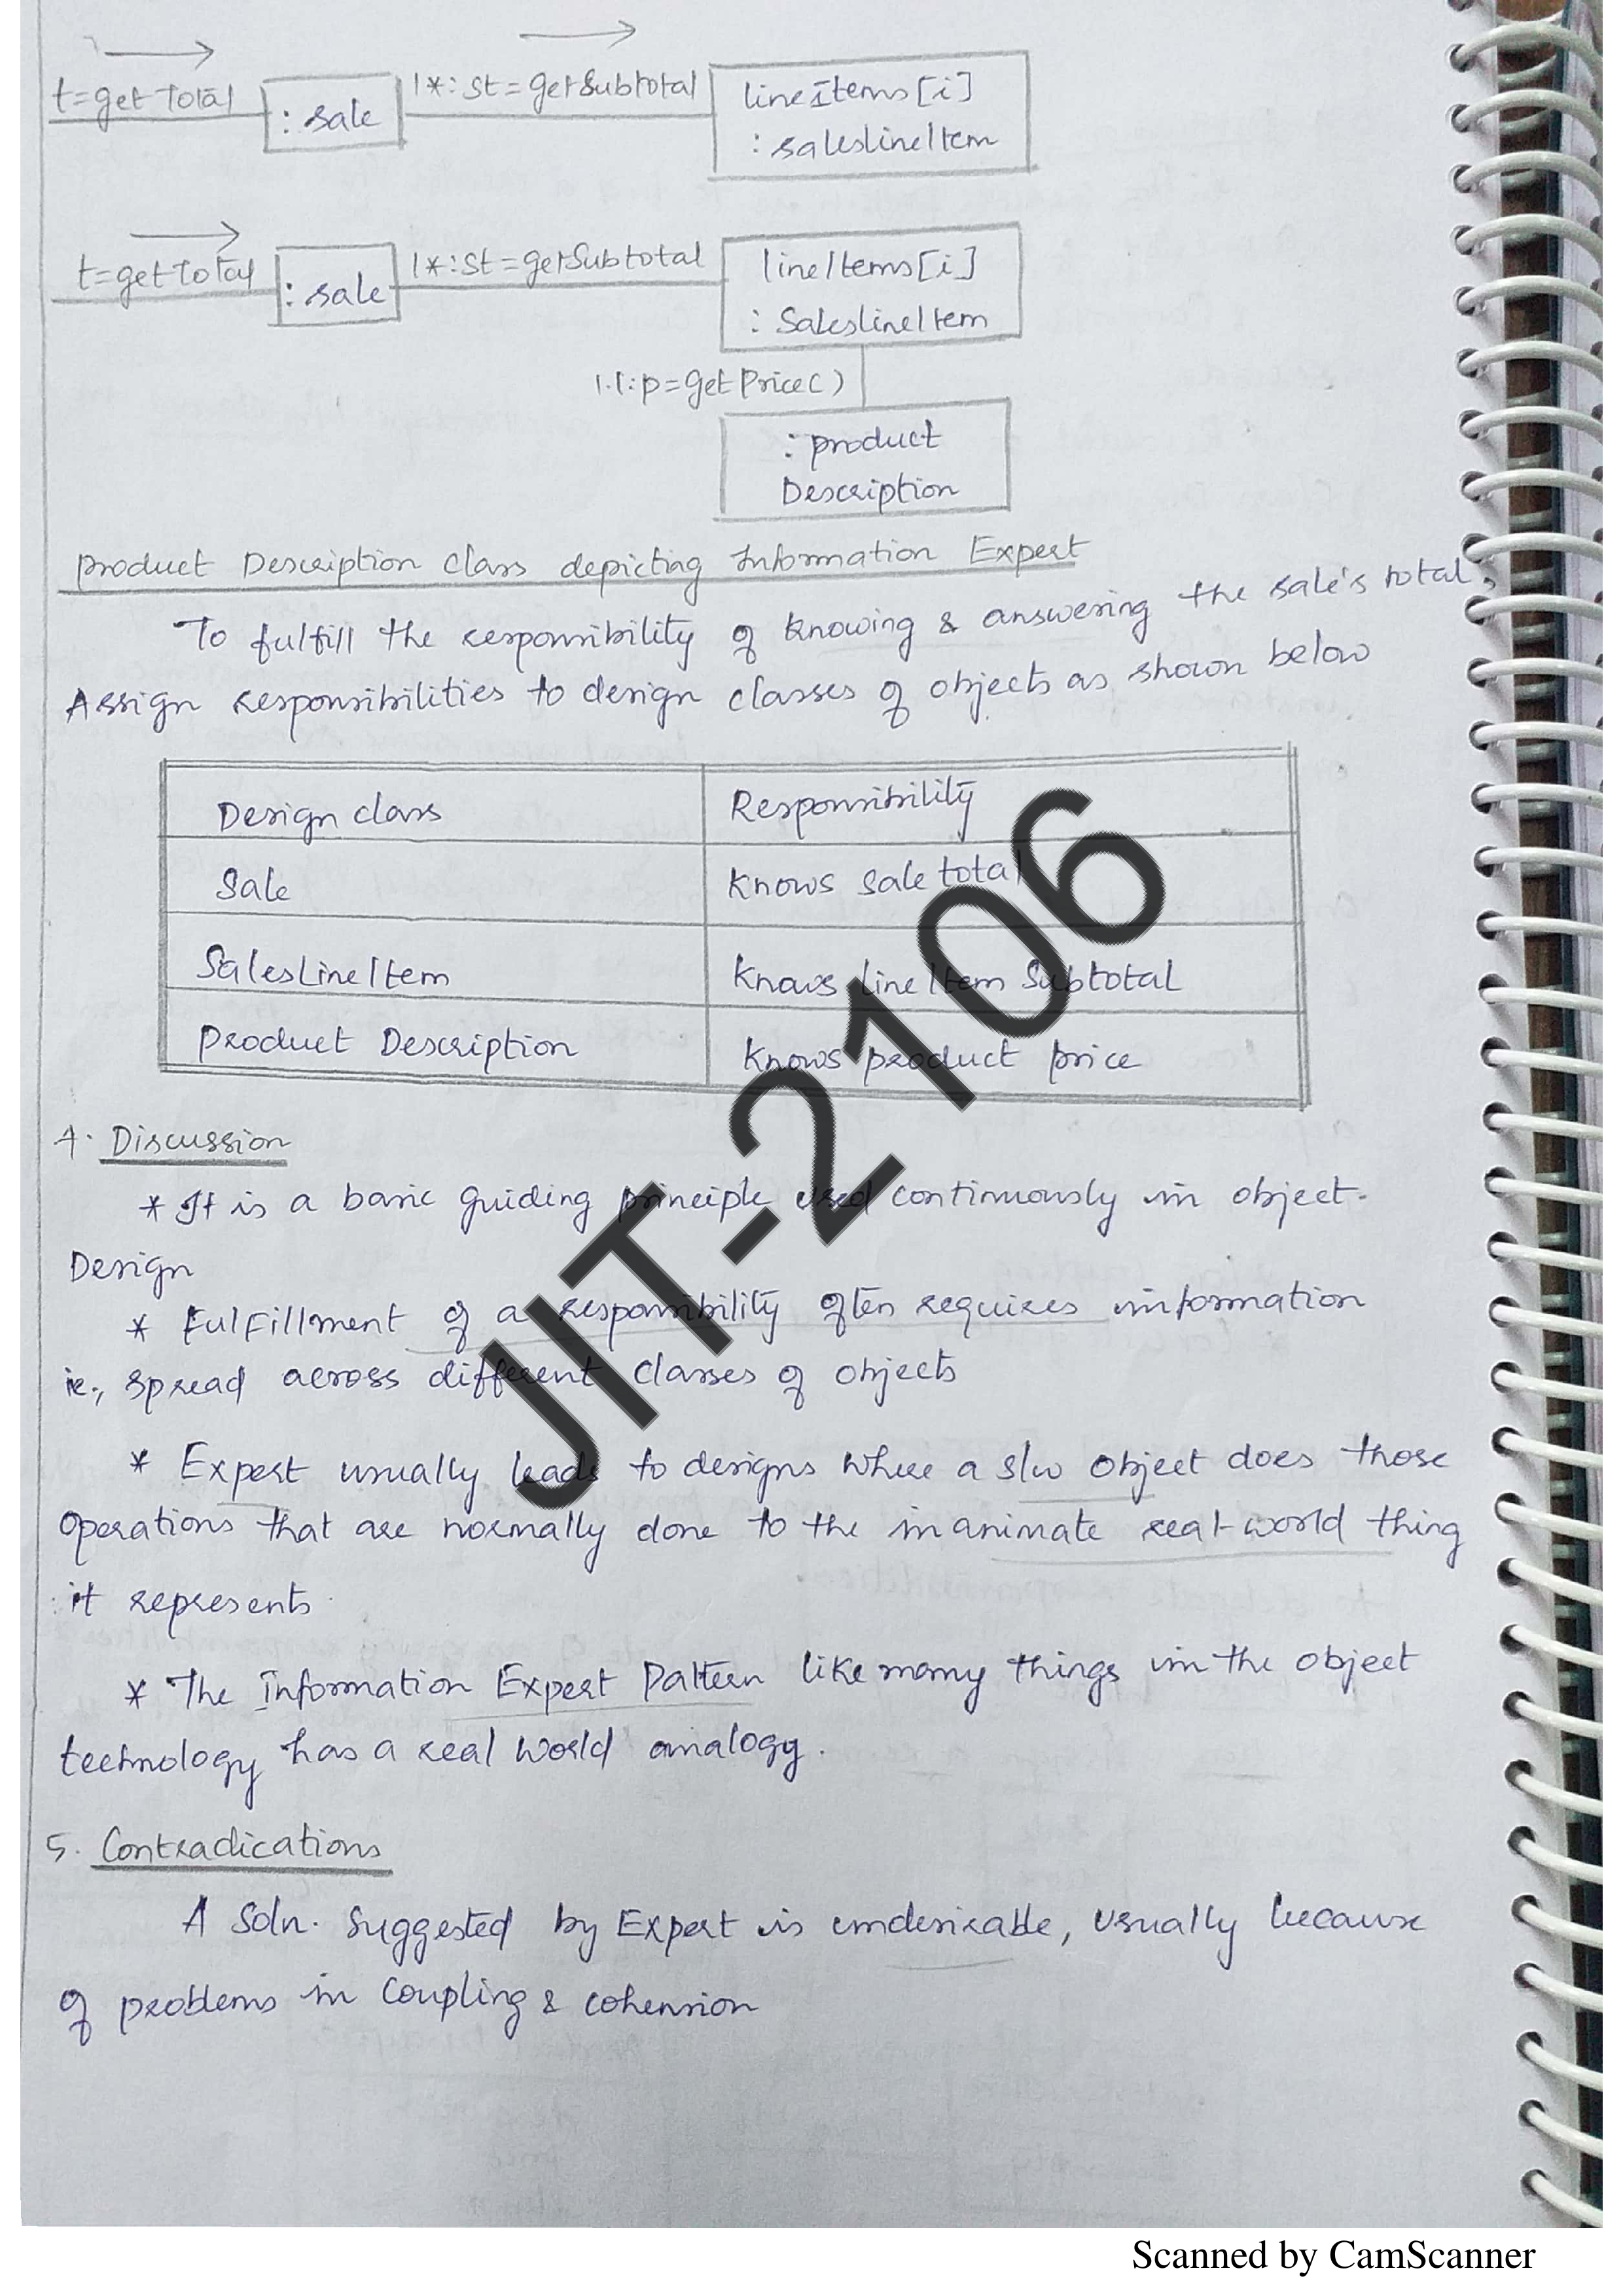 t=getTotal :sale 1*:st=getSubtotal lineItems[i]
:salesLineItem
t=getTotal :sale 1*:st=getSubtotal lineItems[i]
:SalesLineItem
1.1:p=getPrice()
:product
Description
Product Description Class depicting Information Expert
To fulfill the responsibility of knowing & answering the sale's total,
Assign responsibilities to design classes of objects as shown below
Design class Responsibility
Sale Knows sale total
SalesLineItem Knows line Item Subtotal
Product Description Knows product price
4. Discussion
* It is a basic guiding principle used continuously in object-
Design
* Fulfillment of a responsibility often requires information
ie., spread across different classes of objects
* Expert usually leads to designs where a s/w object does those
operations that are normally done to the inanimate real-world thing
it represents.
* The Information Expert Pattern like many things in the object
technology has a real world analogy.
5. Contradications
A Soln. Suggested by Expert is undesirable, usually because
of problems in Coupling & cohension
JIT-2106
Scanned by CamScanner